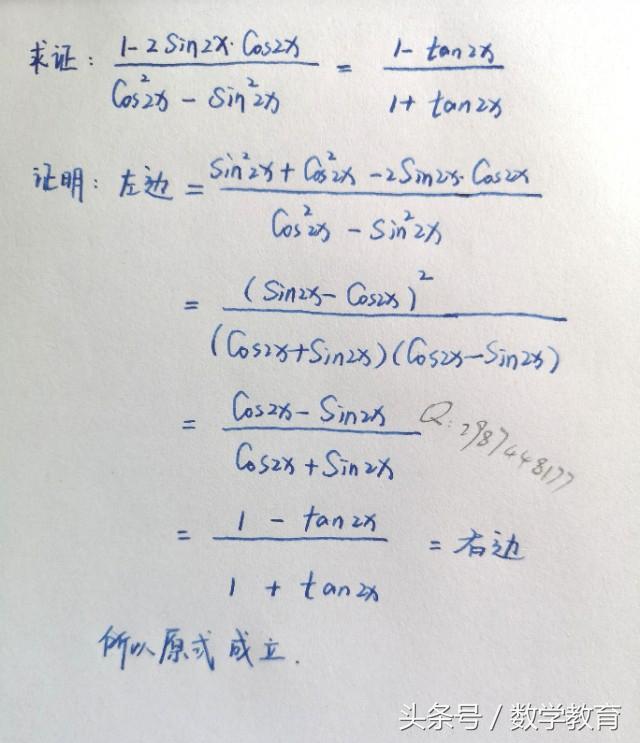 求证: (1-2Sin2x·Cos2x)/(Cos²2x - Sin²2x) = (1-tan2x)/(1+tan2x)
证明: 左边 = (Sin²2x + Cos²2x - 2Sin2x·Cos2x)/(Cos²2x - Sin²2x)
= (Sin2x - Cos2x)²/((Cos2x+Sin2x)(Cos2x-Sin2x))
= (Cos2x - Sin2x)/(Cos2x + Sin2x)
Q:2987448177
= (1 - tan2x)/(1 + tan2x) = 右边
所以原式成立.
头条号 / 数学教育